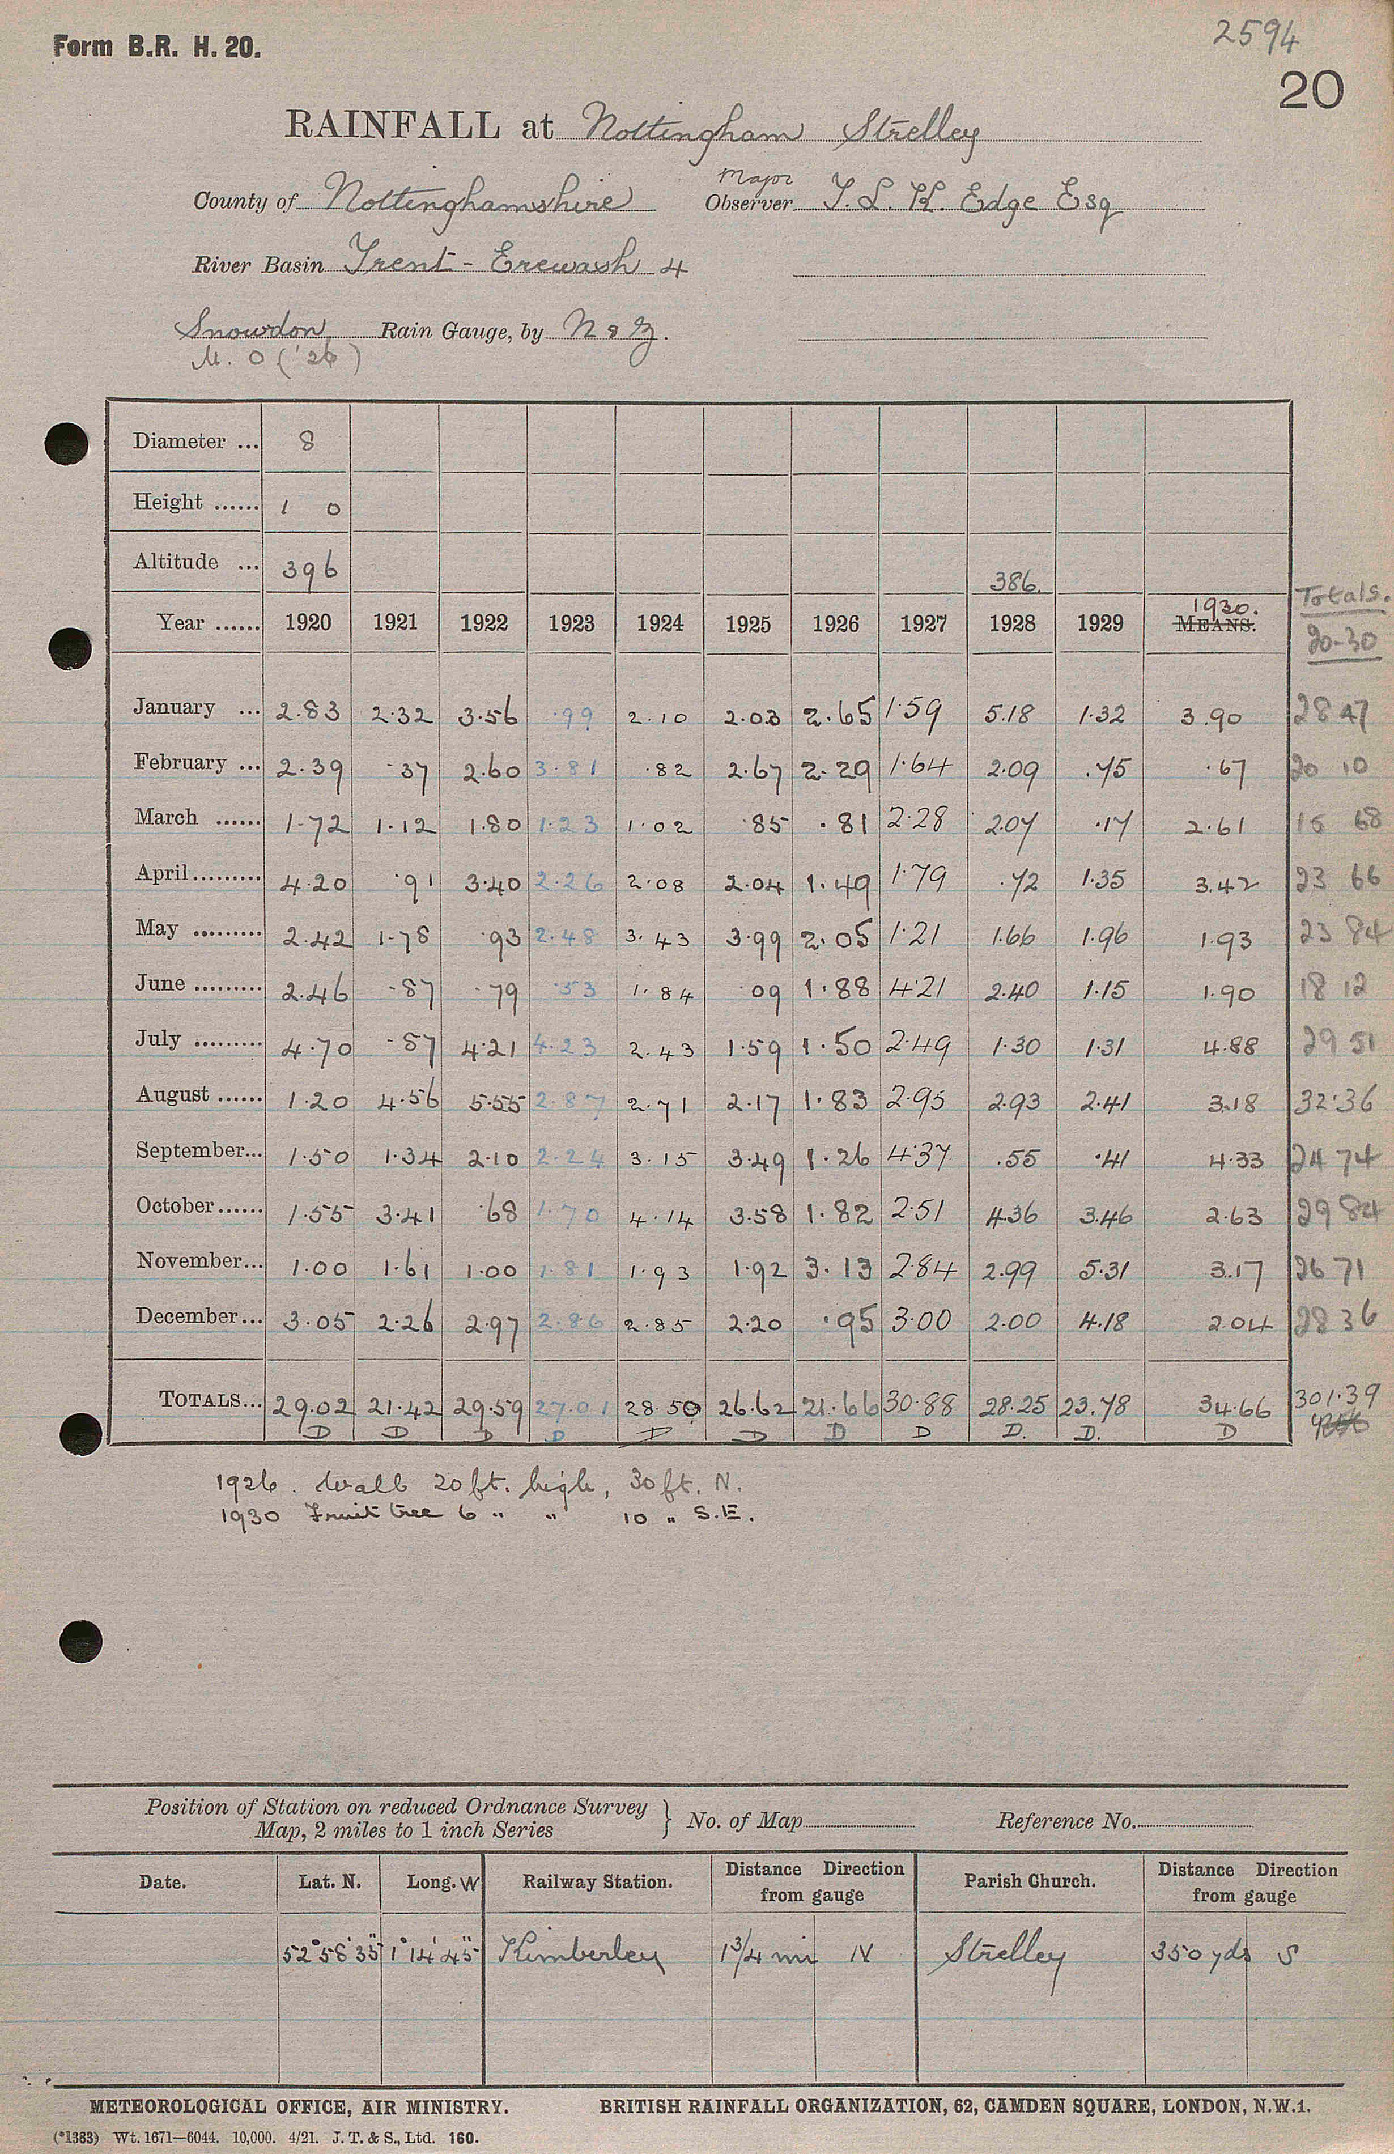 Form B.R. H. 20.
2594
20
RAINFALL at Nottingham Strelley
County of Nottinghamshire Major Observer T. L. K. Edge Esq
River Basin Trent - Erewash 4
Snowdon Rain Gauge, by N & Z.
M. O ('26)
Diameter ... 8
Height ...... 1 0
Altitude ... 396 386.
Totals.
Year ...... 1920 1921 1922 1923 1924 1925 1926 1927 1928 1929 1930. MEANS. 20-30
January ... 2.83 2.32 3.56 .99 2.10 2.03 2.65 1.59 5.18 1.32 3.90 28 47
February ... 2.39 .37 2.60 3.81 .82 2.67 2.29 1.64 2.09 .75 .67 20 10
March ...... 1.72 1.12 1.80 1.23 1.02 .85 .81 2.28 2.07 .17 2.61 15 68
April ......... 4.20 .91 3.40 2.26 2.08 2.04 1.49 1.79 .72 1.35 3.42 23 66
May ......... 2.42 1.78 .93 2.48 3.43 3.99 2.05 1.21 1.66 1.96 1.93 23 84
June ......... 2.46 .87 .79 .53 1.84 09 1.88 4.21 2.40 1.15 1.90 18 12
July ......... 4.70 .87 4.21 4.23 2.43 1.59 1.50 2.49 1.30 1.31 4.88 29 51
August ...... 1.20 4.56 5.55 2.87 2.71 2.17 1.83 2.95 2.93 2.41 3.18 32.36
September... 1.50 1.34 2.10 2.24 3.15 3.49 1.26 4.37 .55 .41 4.33 24 74
October ...... 1.55 3.41 .68 1.70 4.14 3.58 1.82 2.51 4.36 3.46 2.63 29 84
November... 1.00 1.61 1.00 1.81 1.93 1.92 3.13 2.84 2.99 5.31 3.17 26 71
December... 3.05 2.26 2.97 2.86 2.85 2.20 .95 3.00 2.00 4.18 2.04 28 36
TOTALS... 29.02 21.42 29.59 27.01 28.50 26.62 21.66 30.88 28.25 23.78 34.66 301.39
D D D D D D D D D. D. D
1926. Wall 20 ft. high, 30 ft. N.
1930 Fruit tree 6 " " 10 " S.E.
Position of Station on reduced Ordnance Survey Map, 2 miles to 1 inch Series } No. of Map Reference No.
Date. Lat. N. Long. W Railway Station. Distance Direction from gauge Parish Church. Distance Direction from gauge
52° 58' 35" 1° 14' 45" Kimberley 1 3/4 mi N Strelley 350 yds S
METEOROLOGICAL OFFICE, AIR MINISTRY. BRITISH RAINFALL ORGANIZATION, 62, CAMDEN SQUARE, LONDON, N.W.1.
(*1383) Wt. 1671—6044. 10,000. 4/21. J. T. & S., Ltd. 160.